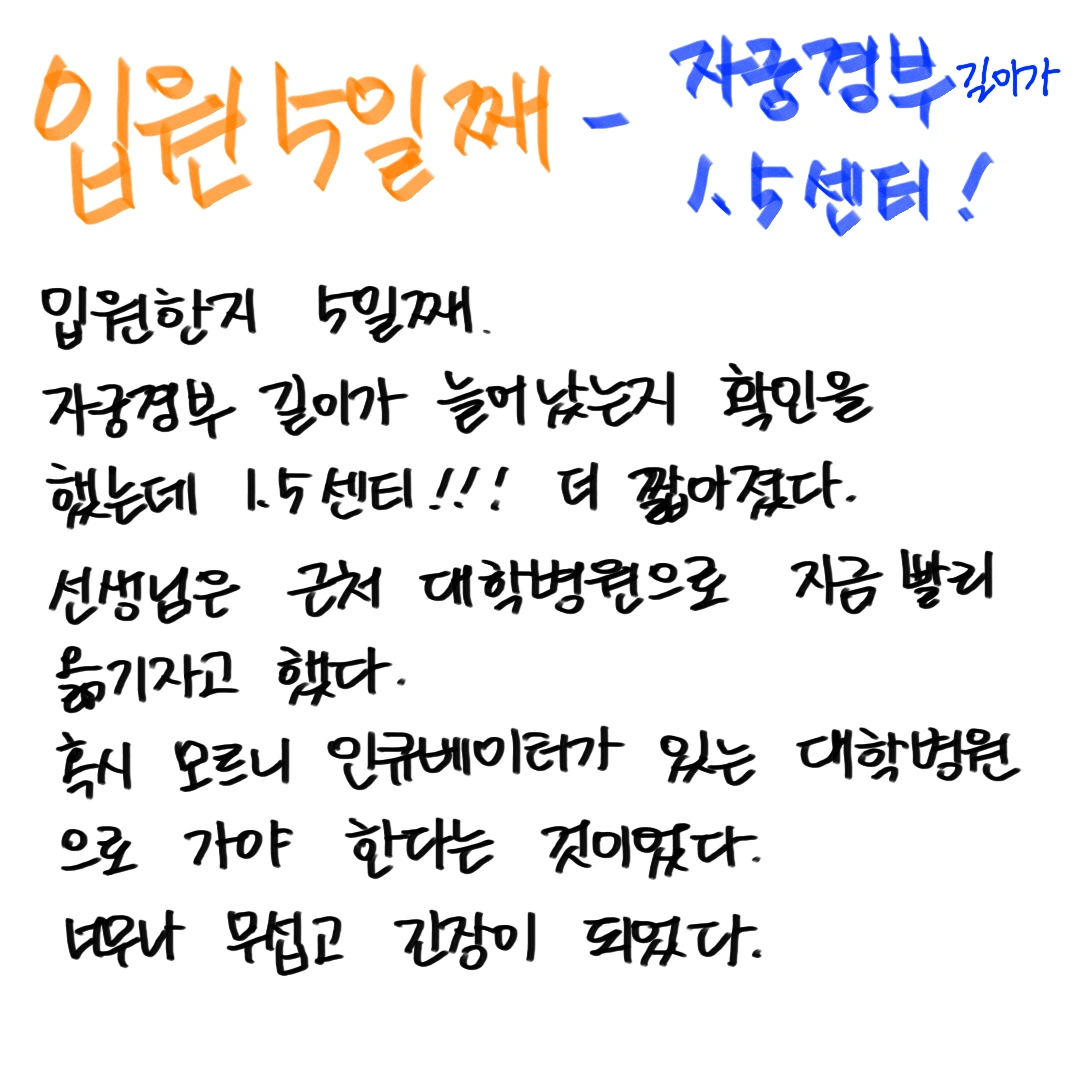 입원 5일째 - 자궁경부 길이가
1.5센터!
입원한지 5일째.
자궁경부 길이가 늘어났는지 확인을
했는데 1.5센티!!! 더 짧아졌다.
선생님은 근처 대학병원으로 지금 빨리
옮기자고 했다.
혹시 모르니 인큐베이터가 있는 대학병원
으로 가야 한다는 것이었다.
너무나 무섭고 긴장이 되었다.